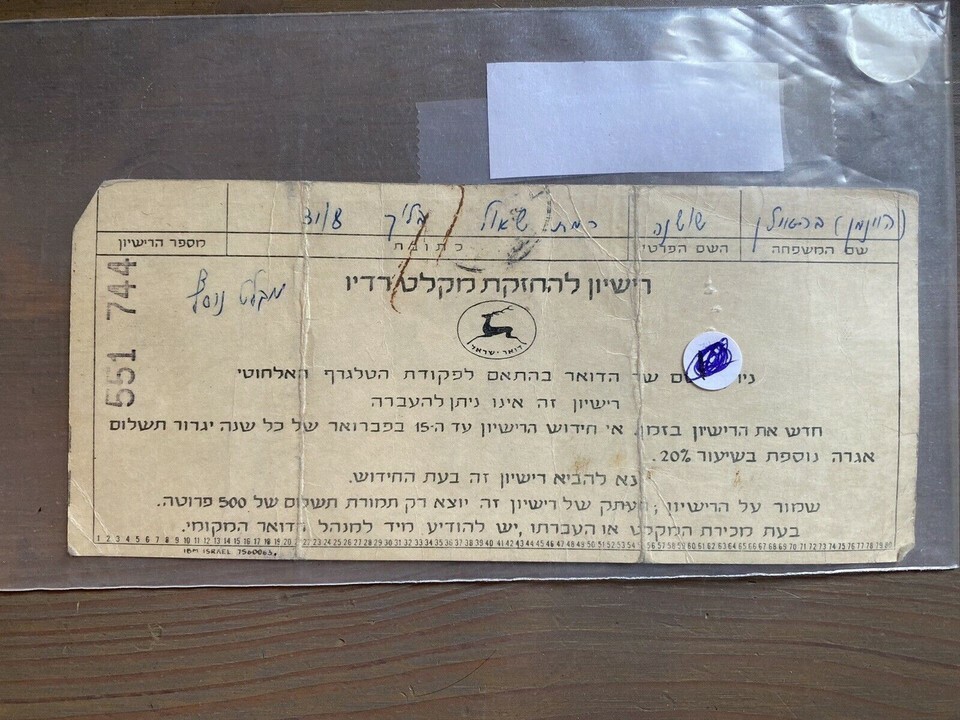 שושנה רמת שאול
שם המשפחה השם הפרטי כתובת מספר הרישיון
551 744
רישיון להחזקת מקלט רדיו
מקלט נוסף
דואר ישראל
הדואר בהתאם לפקודת הטלגרף האלחוטי
רישיון זה אינו ניתן להעברה
חדש את הרישיון בזמן. אי חידוש הרישיון עד ה-15 בפברואר של כל שנה יגרור תשלום
אגרה נוספת בשיעור 20%.
נא להביא רישיון זה בעת החידוש.
שמור על הרישיון; העתק של רישיון זה יוצא רק תמורת תשלום של 500 פרוטה.
בעת מכירת המקלט או העברתו, יש להודיע מיד למנהל הדואר המקומי.
1 2 3 4 5 6 7 8 9 10 11 12 13 14 15 16 17 18 19 20 22 23 24 25 26 27 28 29 30 31 32 33 34 35 36 37 38 39 40 41 42 43 44 45 46 47 48 49 50 51 52 53 54 56 57 58 59 60 61 62 63 64 65 66 67 68 69 70 71 72 73 74 75 76 77 78 79 80
IBM ISRAEL 7560063.